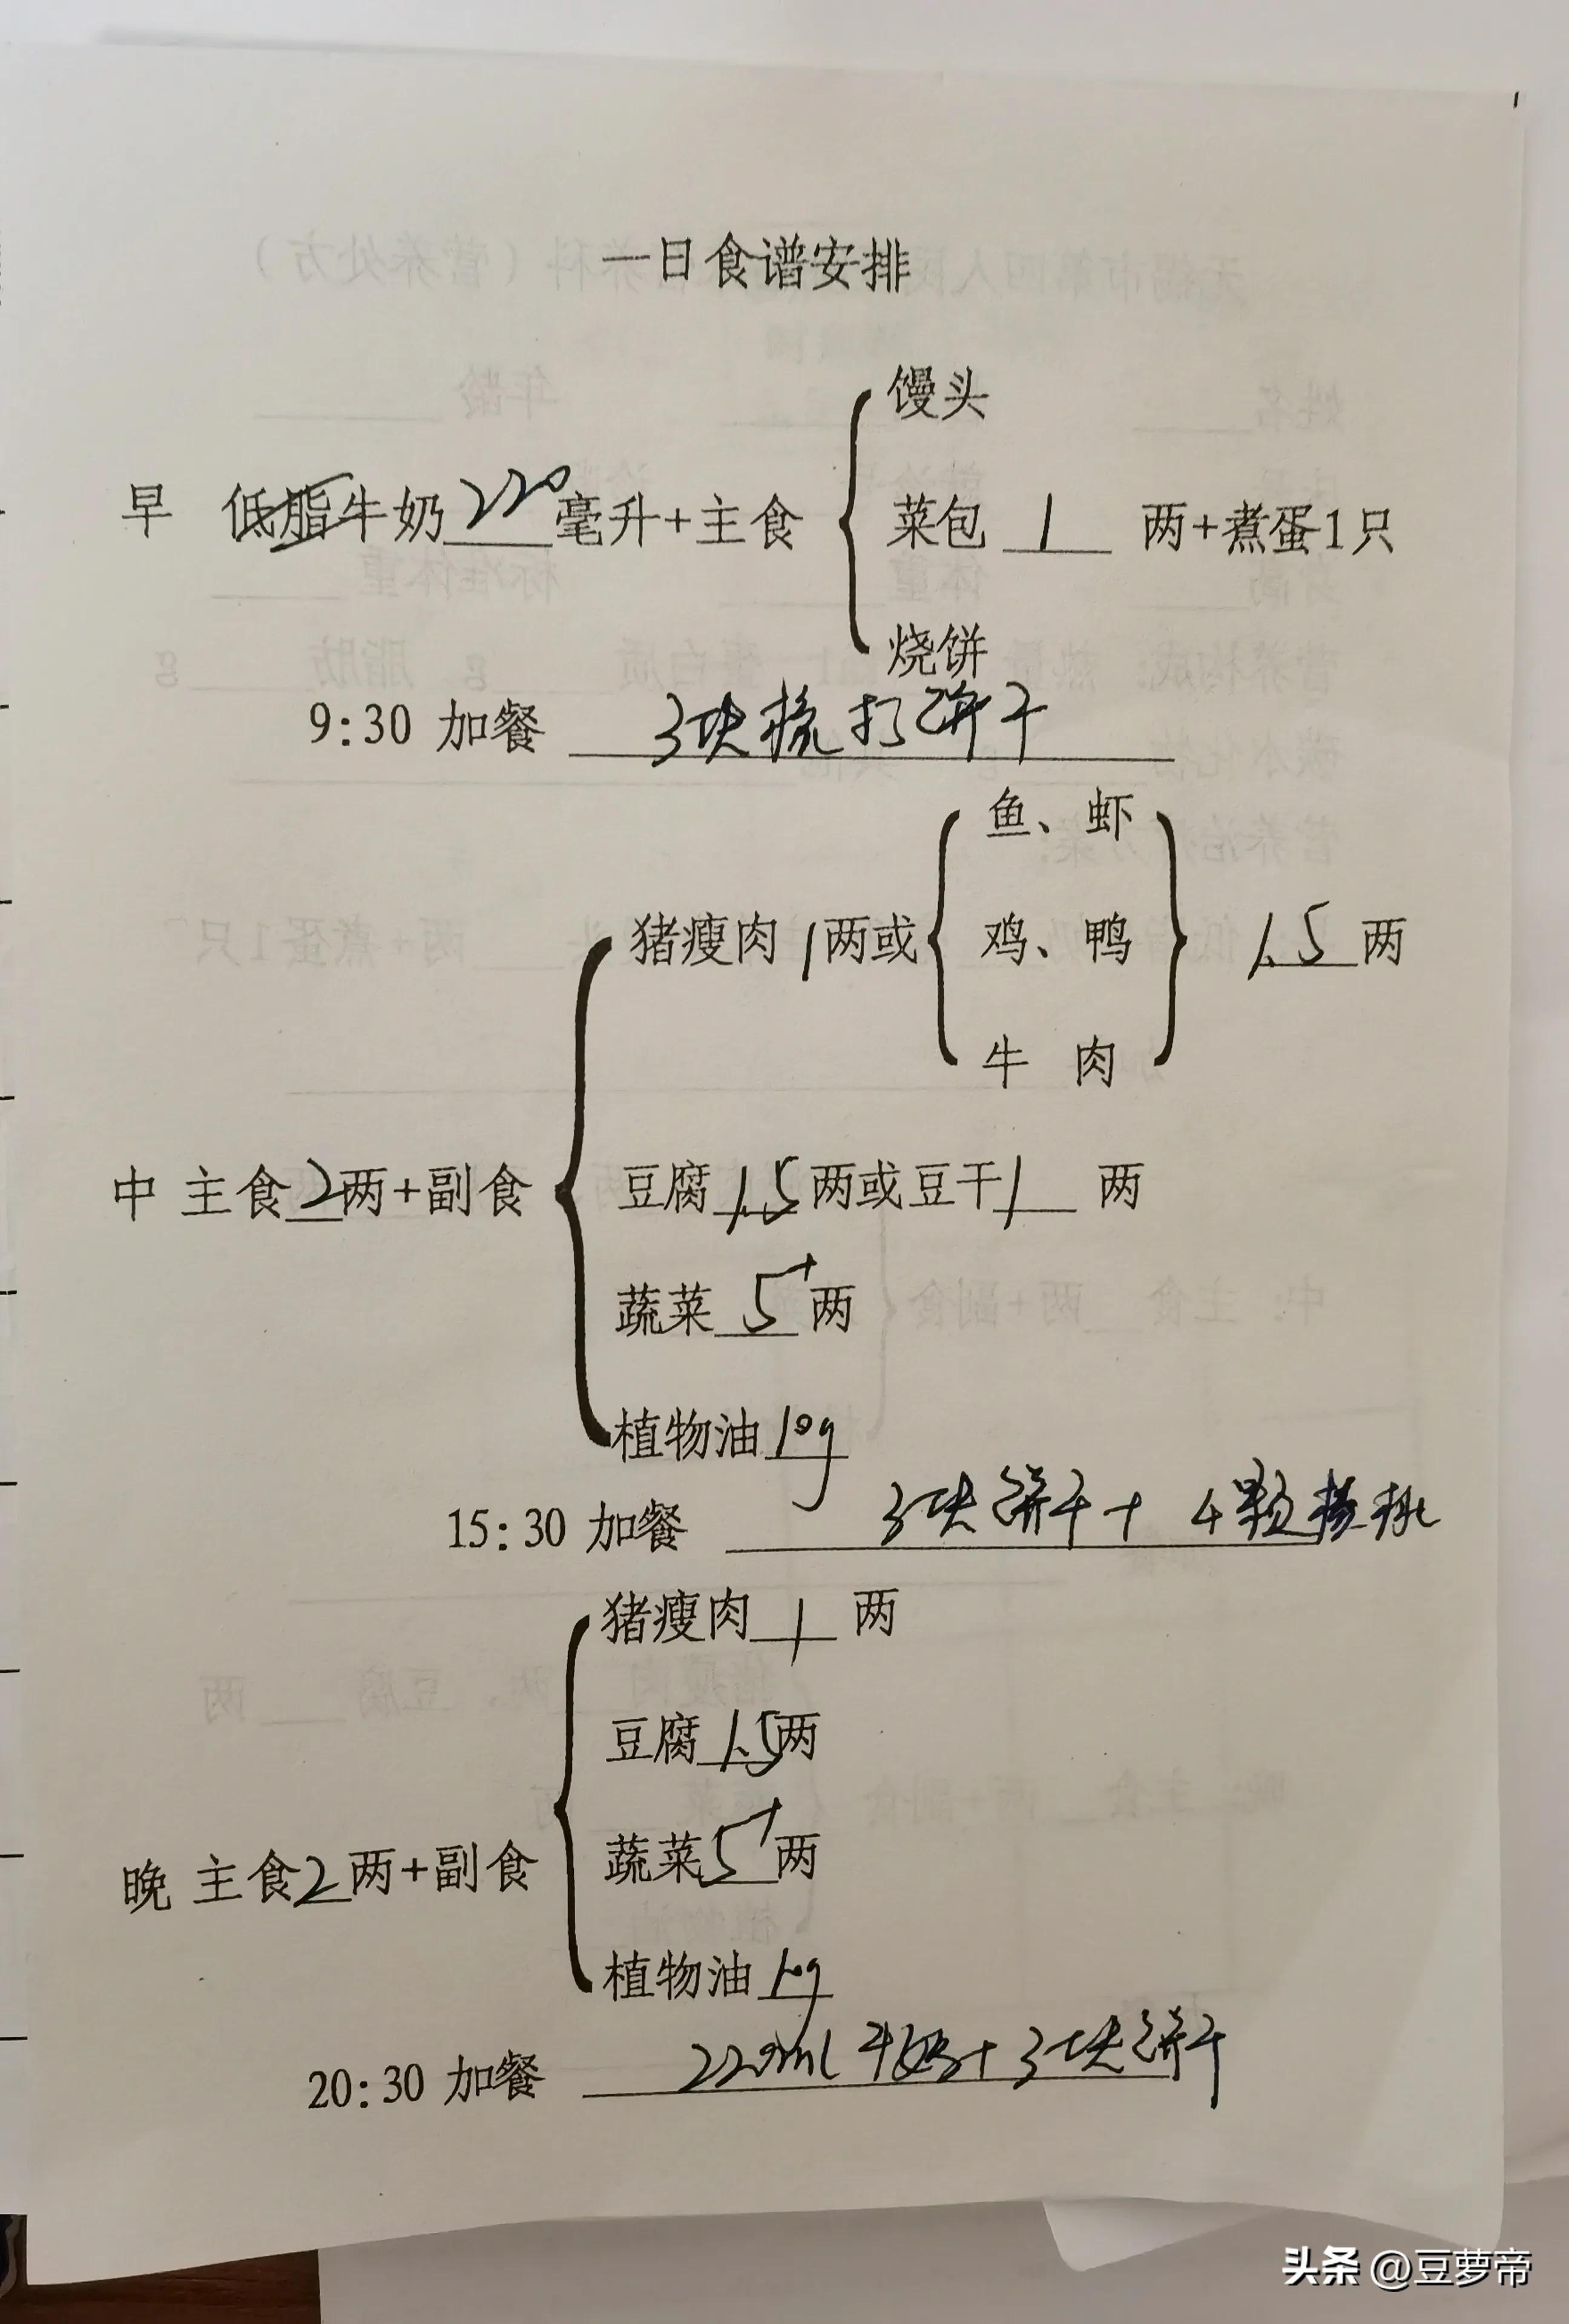 一日食谱安排
馒头
早 低脂牛奶220毫升+主食 菜包 1 两+煮蛋1只
烧饼
9:30 加餐 3块梳打饼干
鱼、虾
猪瘦肉1两或 鸡、鸭 1.5两
牛 肉
中 主食2两+副食 豆腐1.5两或豆干1 两
蔬菜5+两
植物油10g
15:30 加餐 3块饼干+4颗核桃
猪瘦肉1 两
豆腐1.5两
蔬菜5+两
晚 主食2两+副食
植物油10g
20:30 加餐 220ml牛奶+3块饼干
头条 @豆萝帝